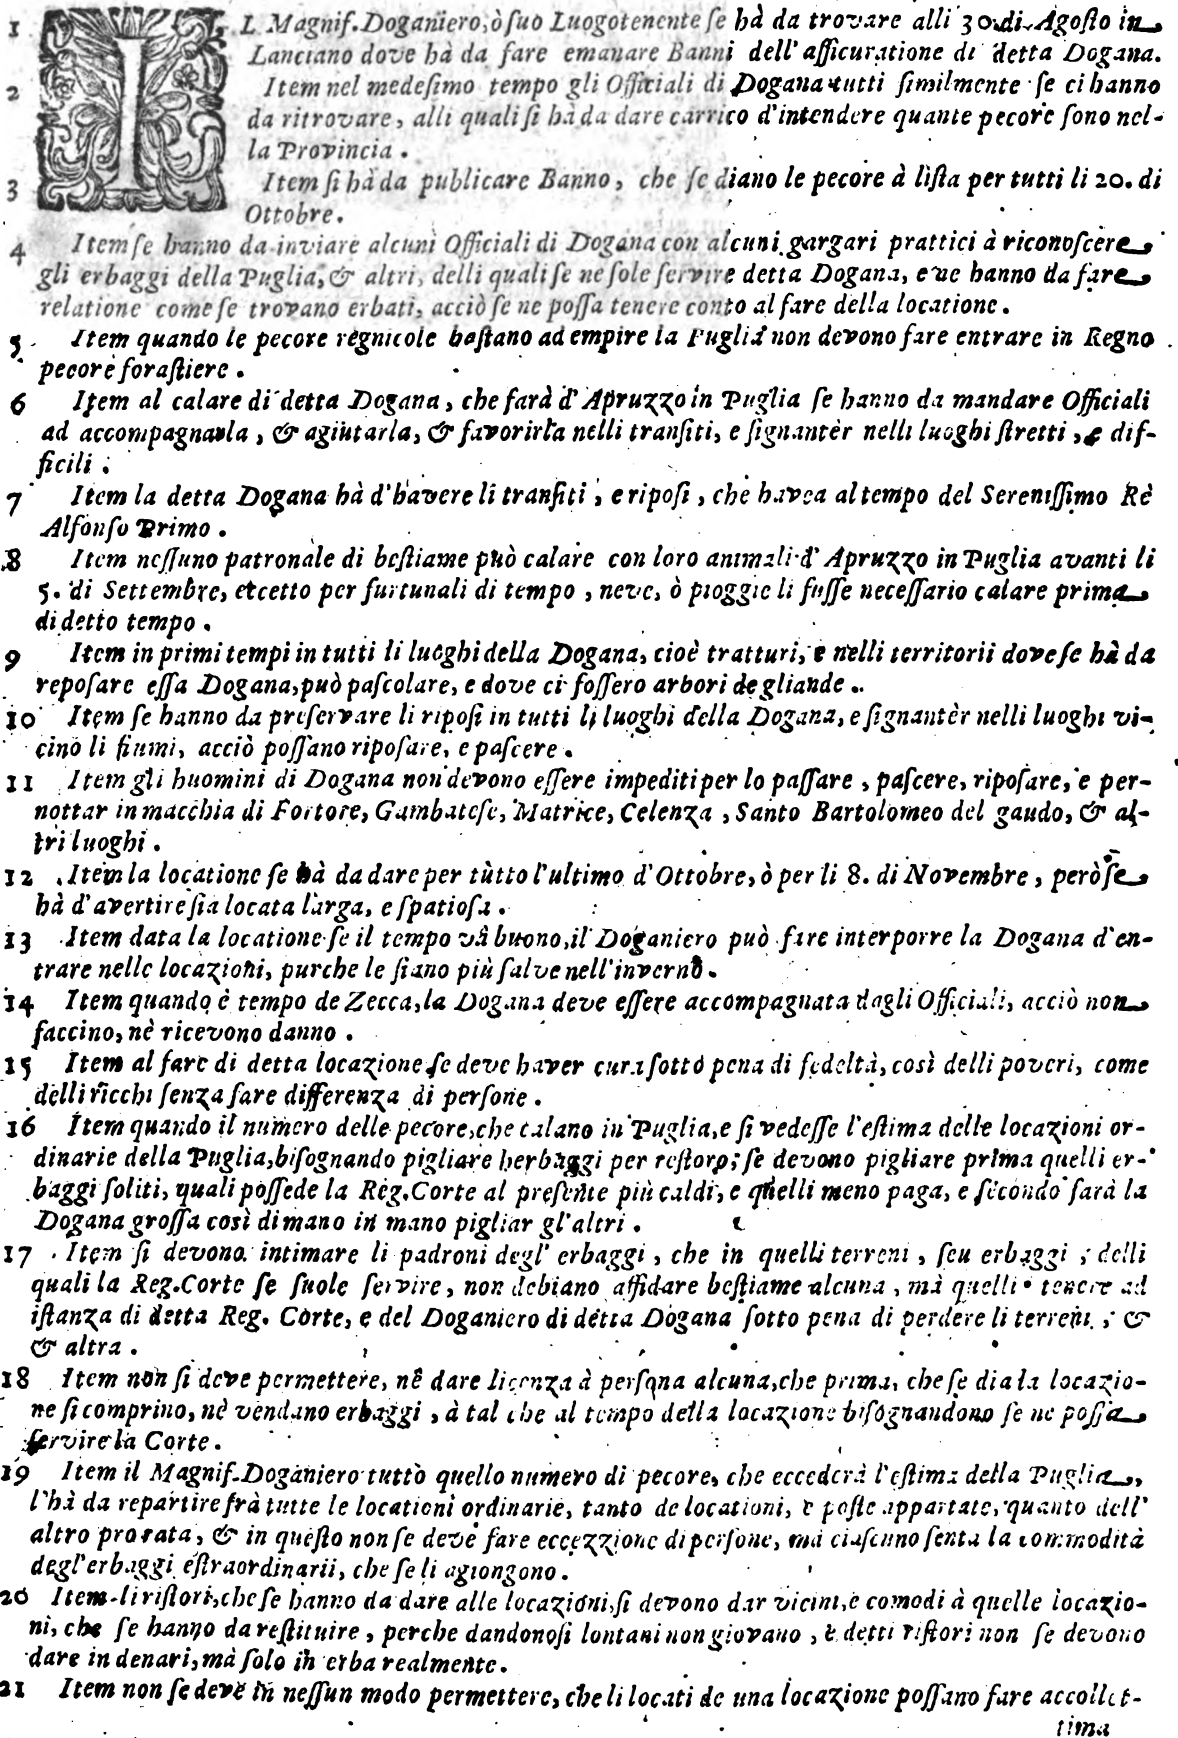 1 IL Magnif. Doganiero, ò suo Luogotenente se hà da trovare alli 30. di Agosto in
Lanciano dove hà da fare emanare Banni dell' assicuratione di detta Dogana.
2 Item nel medesimo tempo gli Officiali di Dogana tutti similmente se ci hanno
da ritrovare, alli quali si hà da dare carrico d'intendere quante pecore sono nel-
la Provincia.
3 Item si hà da publicare Banno, che se diano le pecore à lista per tutti li 20. di
Ottobre.
4 Item se hanno da inviare alcuni Officiali di Dogana con alcuni gargari prattici à riconoscere
gli erbaggi della Puglia, & altri, delli quali se ne sole servire detta Dogana, e ne hanno da fare
relatione come se trovano erbati, acciò se ne possa tenere conto al fare della locatione.
5 Item quando le pecore regnicole bastano ad empire la Puglia non devono fare entrare in Regno
pecore forastiere.
6 Item al calare di detta Dogana, che farà d'Apruzzo in Puglia se hanno da mandare Officiali
ad accompagnarla, & agiutarla, & favorirla nelli transiti, e signantèr nelli luoghi stretti, e dif-
ficili.
7 Item la detta Dogana hà d'havere li transiti, e riposi, che havea al tempo del Serenissimo Rè
Alfonso Primo.
8 Item nessuno patronale di bestiame può calare con loro animali d'Apruzzo in Puglia avanti li
5. di Settembre, eccetto per furtunali di tempo, neve, ò pioggie li fusse necessario calare prima
di detto tempo.
9 Item in primi tempi in tutti li luoghi della Dogana, cioè tratturi, e nelli territorii dove se hà da
reposare essa Dogana, può pascolare, e dove ci fossero arbori de gliande.
10 Item se hanno da preservare li riposi in tutti li luoghi della Dogana, e signantèr nelli luoghi vi-
cino li fiumi, acciò possano riposare, e pascere.
11 Item gli huomini di Dogana non devono essere impediti per lo passare, pascere, riposare, e per-
nottar in macchia di Fortore, Gambatese, Matrice, Celenza, Santo Bartolomeo del gaudo, & al-
tri luoghi.
12 Item la locatione se hà da dare per tutto l'ultimo d'Ottobre, ò per li 8. di Novembre, però se
hà d'avertire sia locata larga, e spatiosa.
13 Item data la locatione se il tempo và buono, il Doganiero può fare interporre la Dogana d'en-
trare nelle locazioni, purche le siano più salve nell'inverno.
14 Item quando è tempo de Zecca, la Dogana deve essere accompagnata dagli Officiali, acciò non
faccino, nè ricevono danno.
15 Item al fare di detta locazione se deve haver cura sotto pena di fedeltà, così delli poveri, come
delli ricchi senza fare differenza di persone.
16 Item quando il numero delle pecore, che calano in Puglia, e si vedesse l'estima delle locazioni or-
dinarie della Puglia, bisognando pigliare herbaggi per restoro; se devono pigliare prima quelli er-
baggi soliti, quali possede la Reg. Corte al presente più caldi, e quelli meno paga, e secondo sarà la
Dogana grossa così di mano in mano pigliar gl'altri.
17 Item si devono intimare li padroni degl' erbaggi, che in quelli terreni, seu erbaggi; delli
quali la Reg. Corte se suole servire, non debiano affidare bestiame alcuna, mà quelli tenere ad
istanza di detta Reg. Corte, e del Doganiero di detta Dogana sotto pena di perdere li terreni; &
& altra.
18 Item non si deve permettere, nè dare licenza à persona alcuna, che prima, che se dia la locazio-
ne si comprino, nè vendano erbaggi, à tal che al tempo della locazione bisognandono se ne possa
servire la Corte.
19 Item il Magnif. Doganiero tutto quello numero di pecore, che eccederà l'estima della Puglia,
l'hà da repartire frà tutte le locationi ordinarie, tanto de locationi, e poste appartate, quanto dell'
altro prorata, & in questo non se deve fare eccezzione di persone, mà ciascuno senta la commodità
degl'erbaggi estraordinarii, che se li agiongono.
20 Item li ristori, che se hanno da dare alle locazioni, si devono dar vicini, e comodi à quelle locazio-
ni, che se hanno da restituire, perche dandonosi lontani non giovano, e detti ristori non se devono
dare in denari, mà solo in erba realmente.
21 Item non se deve in nessun modo permettere, che li locati de una locazione possano fare accollet-
tima